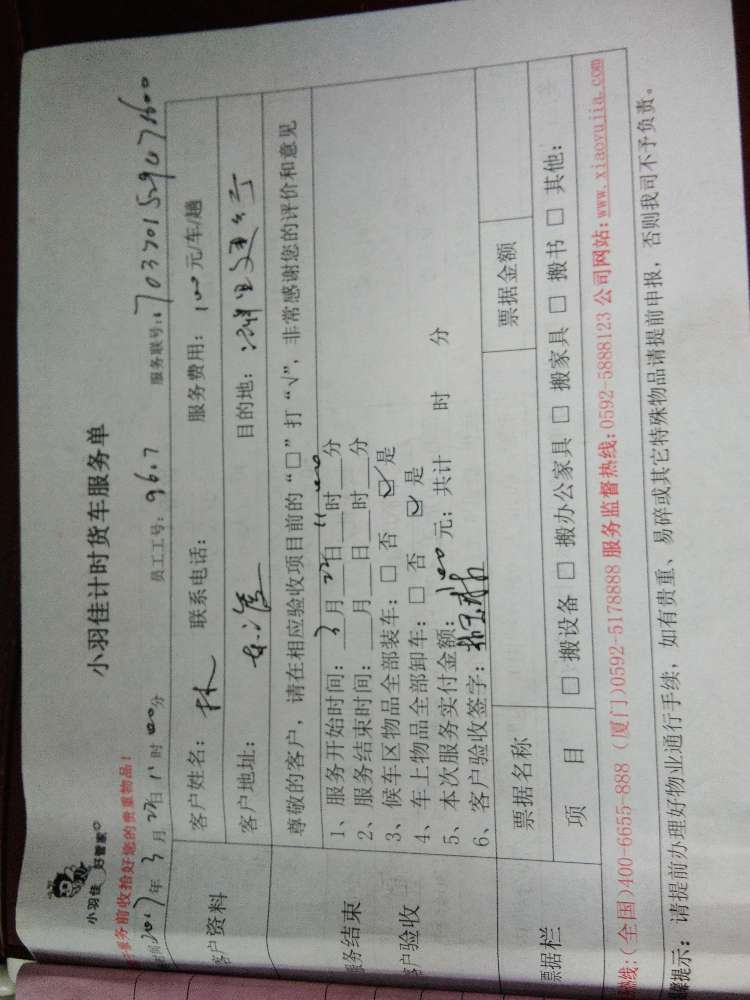 小羽佳
好管家
小羽佳计时货车服务单
务前收拾好您的贵重物品!
2017年3月22日11时00分 员工工号: 9607 服务联号:
客户资料
客户姓名: 林 联系电话: 服务费用: 100元/车/趟
客户地址: 目的地:
尊敬的客户,请在相应验收项目前的“□”打“√”,非常感谢您的评价和意见
服务结束
客户验收
1、服务开始时间: 3月22日11时00分
2、服务结束时间: 月 日 时 分
3、候车区物品全部装车: □ 否 ☑ 是
4、车上物品全部卸车: □ 否 ☑ 是
5、本次服务实付金额: 100元; 共计 时 分
6、客户验收签字:
票据栏
票据名称 票据金额
项 目 □ 搬设备 □ 搬办公家具 □ 搬家具 □ 搬书 □ 其他:
热线:(全国)400-6655-888 (厦门)0592-5178888 服务监督热线:0592-5888123 公司网站:www.xiaoyujia.com
提示: 请提前办理好物业通行手续, 如有贵重、易碎或其它特殊物品请提前申报, 否则我司不予负责。